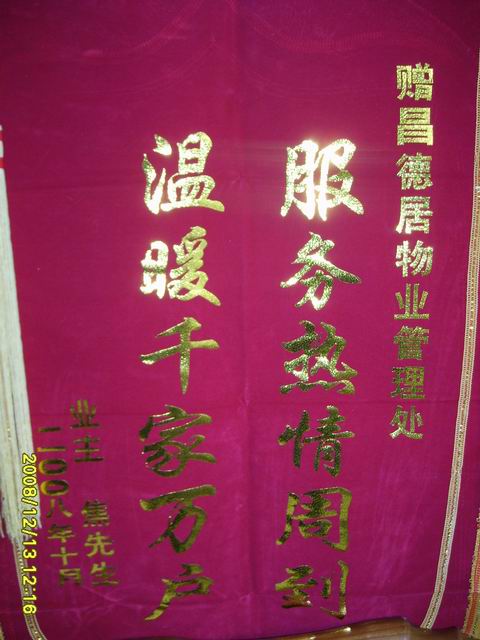 赠昌德居物业管理处
服务热情周到
温暖千家万户
业主 焦先生
二00八年十月
2008/12/13 12:16